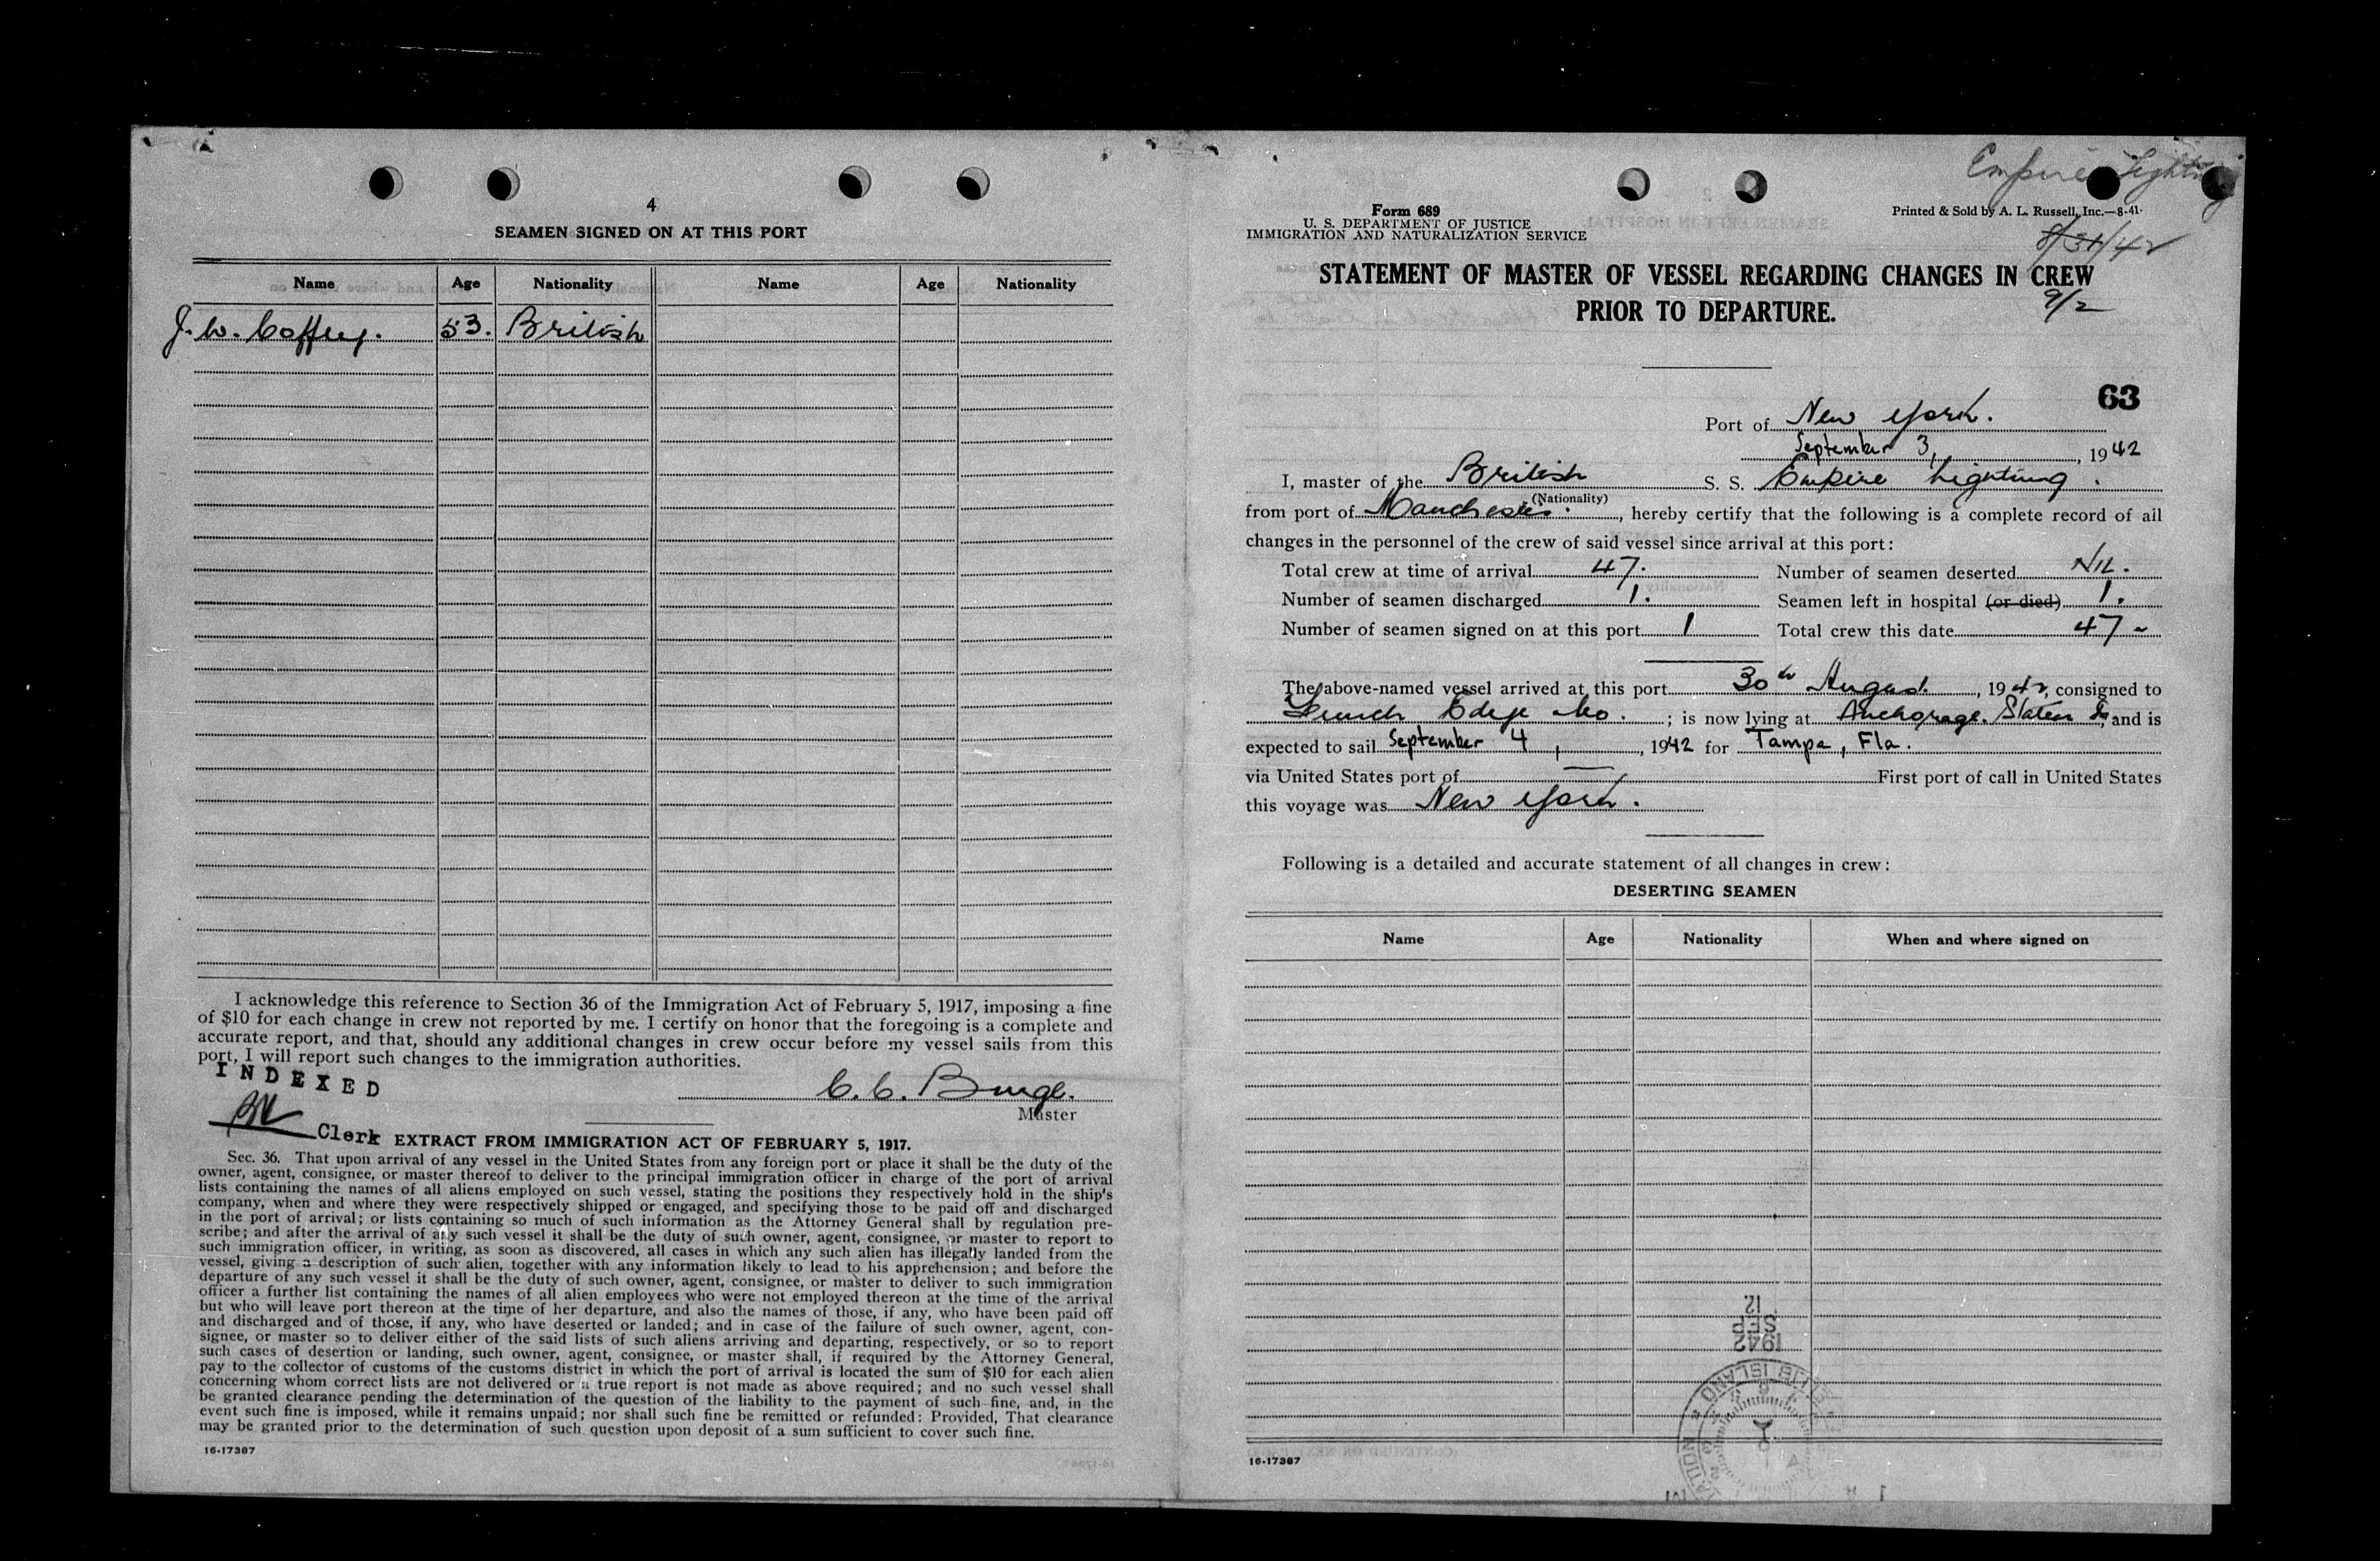 4
SEAMEN SIGNED ON AT THIS PORT
Name Age Nationality Name Age Nationality
J. W. Coffey. 53. British
I acknowledge this reference to Section 36 of the Immigration Act of February 5, 1917, imposing a fine
of $10 for each change in crew not reported by me. I certify on honor that the foregoing is a complete and
accurate report, and that, should any additional changes in crew occur before my vessel sails from this
port, I will report such changes to the immigration authorities.
INDEXED
C. C.
Master
Clerk
EXTRACT FROM IMMIGRATION ACT OF FEBRUARY 5, 1917.
Sec. 36. That upon arrival of any vessel in the United States from any foreign port or place it shall be the duty of the
owner, agent, consignee, or master thereof to deliver to the principal immigration officer in charge of the port of arrival
lists containing the names of all aliens employed on such vessel, stating the positions they respectively hold in the ship's
company, when and where they were respectively shipped or engaged, and specifying those to be paid off and discharged
in the port of arrival; or lists containing so much of such information as the Attorney General shall by regulation pre-
scribe; and after the arrival of any such vessel it shall be the duty of such owner, agent, consignee, or master to report to
such immigration officer, in writing, as soon as discovered, all cases in which any such alien has illegally landed from the
vessel, giving a description of such alien, together with any information likely to lead to his apprehension; and before the
departure of any such vessel it shall be the duty of such owner, agent, consignee, or master to deliver to such immigration
officer a further list containing the names of all alien employees who were not employed thereon at the time of the arrival
but who will leave port thereon at the time of her departure, and also the names of those, if any, who have been paid off
and discharged and of those, if any, who have deserted or landed; and in case of the failure of such owner, agent, con-
signee, or master so to deliver either of the said lists of such aliens arriving and departing, respectively, or so to report
such cases of desertion or landing, such owner, agent, consignee, or master shall, if required by the Attorney General,
pay to the collector of customs of the customs district in which the port of arrival is located the sum of $10 for each alien
concerning whom correct lists are not delivered or a true report is not made as above required; and no such vessel shall
be granted clearance pending the determination of the question of the liability to the payment of such fine, and, in the
event such fine is imposed, while it remains unpaid; nor shall such fine be remitted or refunded: Provided, That clearance
may be granted prior to the determination of such question upon deposit of a sum sufficient to cover such fine.
16-17387
Empire Lightning
Form 689
U. S. DEPARTMENT OF JUSTICE
IMMIGRATION AND NATURALIZATION SERVICE
Printed & Sold by A. L. Russell, Inc.—8-41.
8/31/42
STATEMENT OF MASTER OF VESSEL REGARDING CHANGES IN CREW
PRIOR TO DEPARTURE.
9/2
63
Port of New York.
September 3, , 1942
I, master of the British S. S. Empire Lightning.
(Nationality)
from port of Manchester. , hereby certify that the following is a complete record of all
changes in the personnel of the crew of said vessel since arrival at this port:
Total crew at time of arrival 47. Number of seamen deserted Nil.
Number of seamen discharged 1. Seamen left in hospital (or died) 1.
Number of seamen signed on at this port 1 Total crew this date 47
The above-named vessel arrived at this port 30th August , 1942, consigned to
French Edye &Co. ; is now lying at Anchorage. Staten Is and is
expected to sail September 4, , 1942 for Tampa, Fla.
via United States port of — First port of call in United States
this voyage was New York.
Following is a detailed and accurate statement of all changes in crew:
DESERTING SEAMEN
Name Age Nationality When and where signed on
12
SEP
1942
ISLAND
16-17387